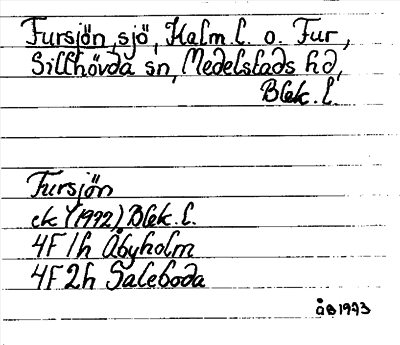 Fursjön, sjö, Kalm. l. o. Fur,
Sillhövda sn, Medelstads hd,
Blek. l.
Fursjön
ek Y (1972) Blek. l.
4F 1h Åbyholm
4F 2h Saleboda
ÅB 1973